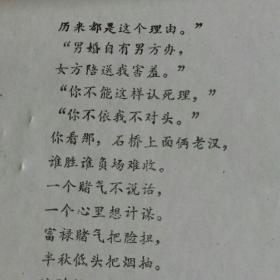 历来都是这个理由。”
“男婚自有男方办，
女方陪送我害羞。”
“你不能这样认死理，”
“你不依我不对头。”
你看那，石桥上面俩老汉，
谁胜谁负场难收。
一个赌气不说话，
一个心里想计谋。
富禄赌气把脸扭，
半秋低头把烟抽。